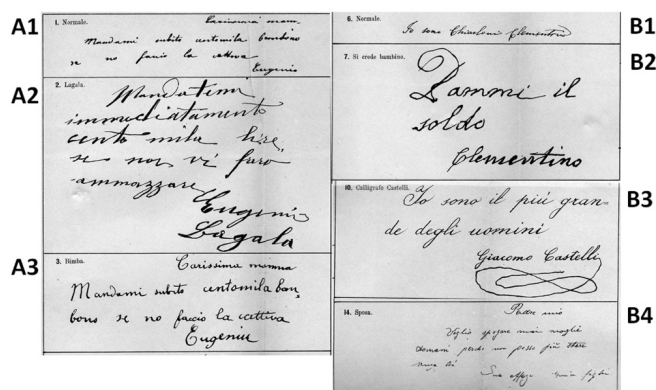 A1
1. Normale.
Carissima mam.
Mandami subito centomila bonbons
se no faccio la cattiva
Eugenio
A2
2. Lagala.
Mandatemi
immediatamente
cento mila lire,
se non vi farò
ammazzare
Eugenio
Lagala
A3
3. Bimba.
Carissima mamma
Mandami subito centomila bon
bons se no faccio la cattiva
Eugeniu
B1
6. Normale.
Io sono Chiarloni Clementino
B2
7. Si crede bambino.
Dammi il
soldo
Clementino
B3
10. Calligrafo Castelli.
Io sono il più gran-
de degli uomini
Giacomo Castelli
B4
14. Sposa.
Padre mio
Voglio sposare
domani perchè un posso più stare